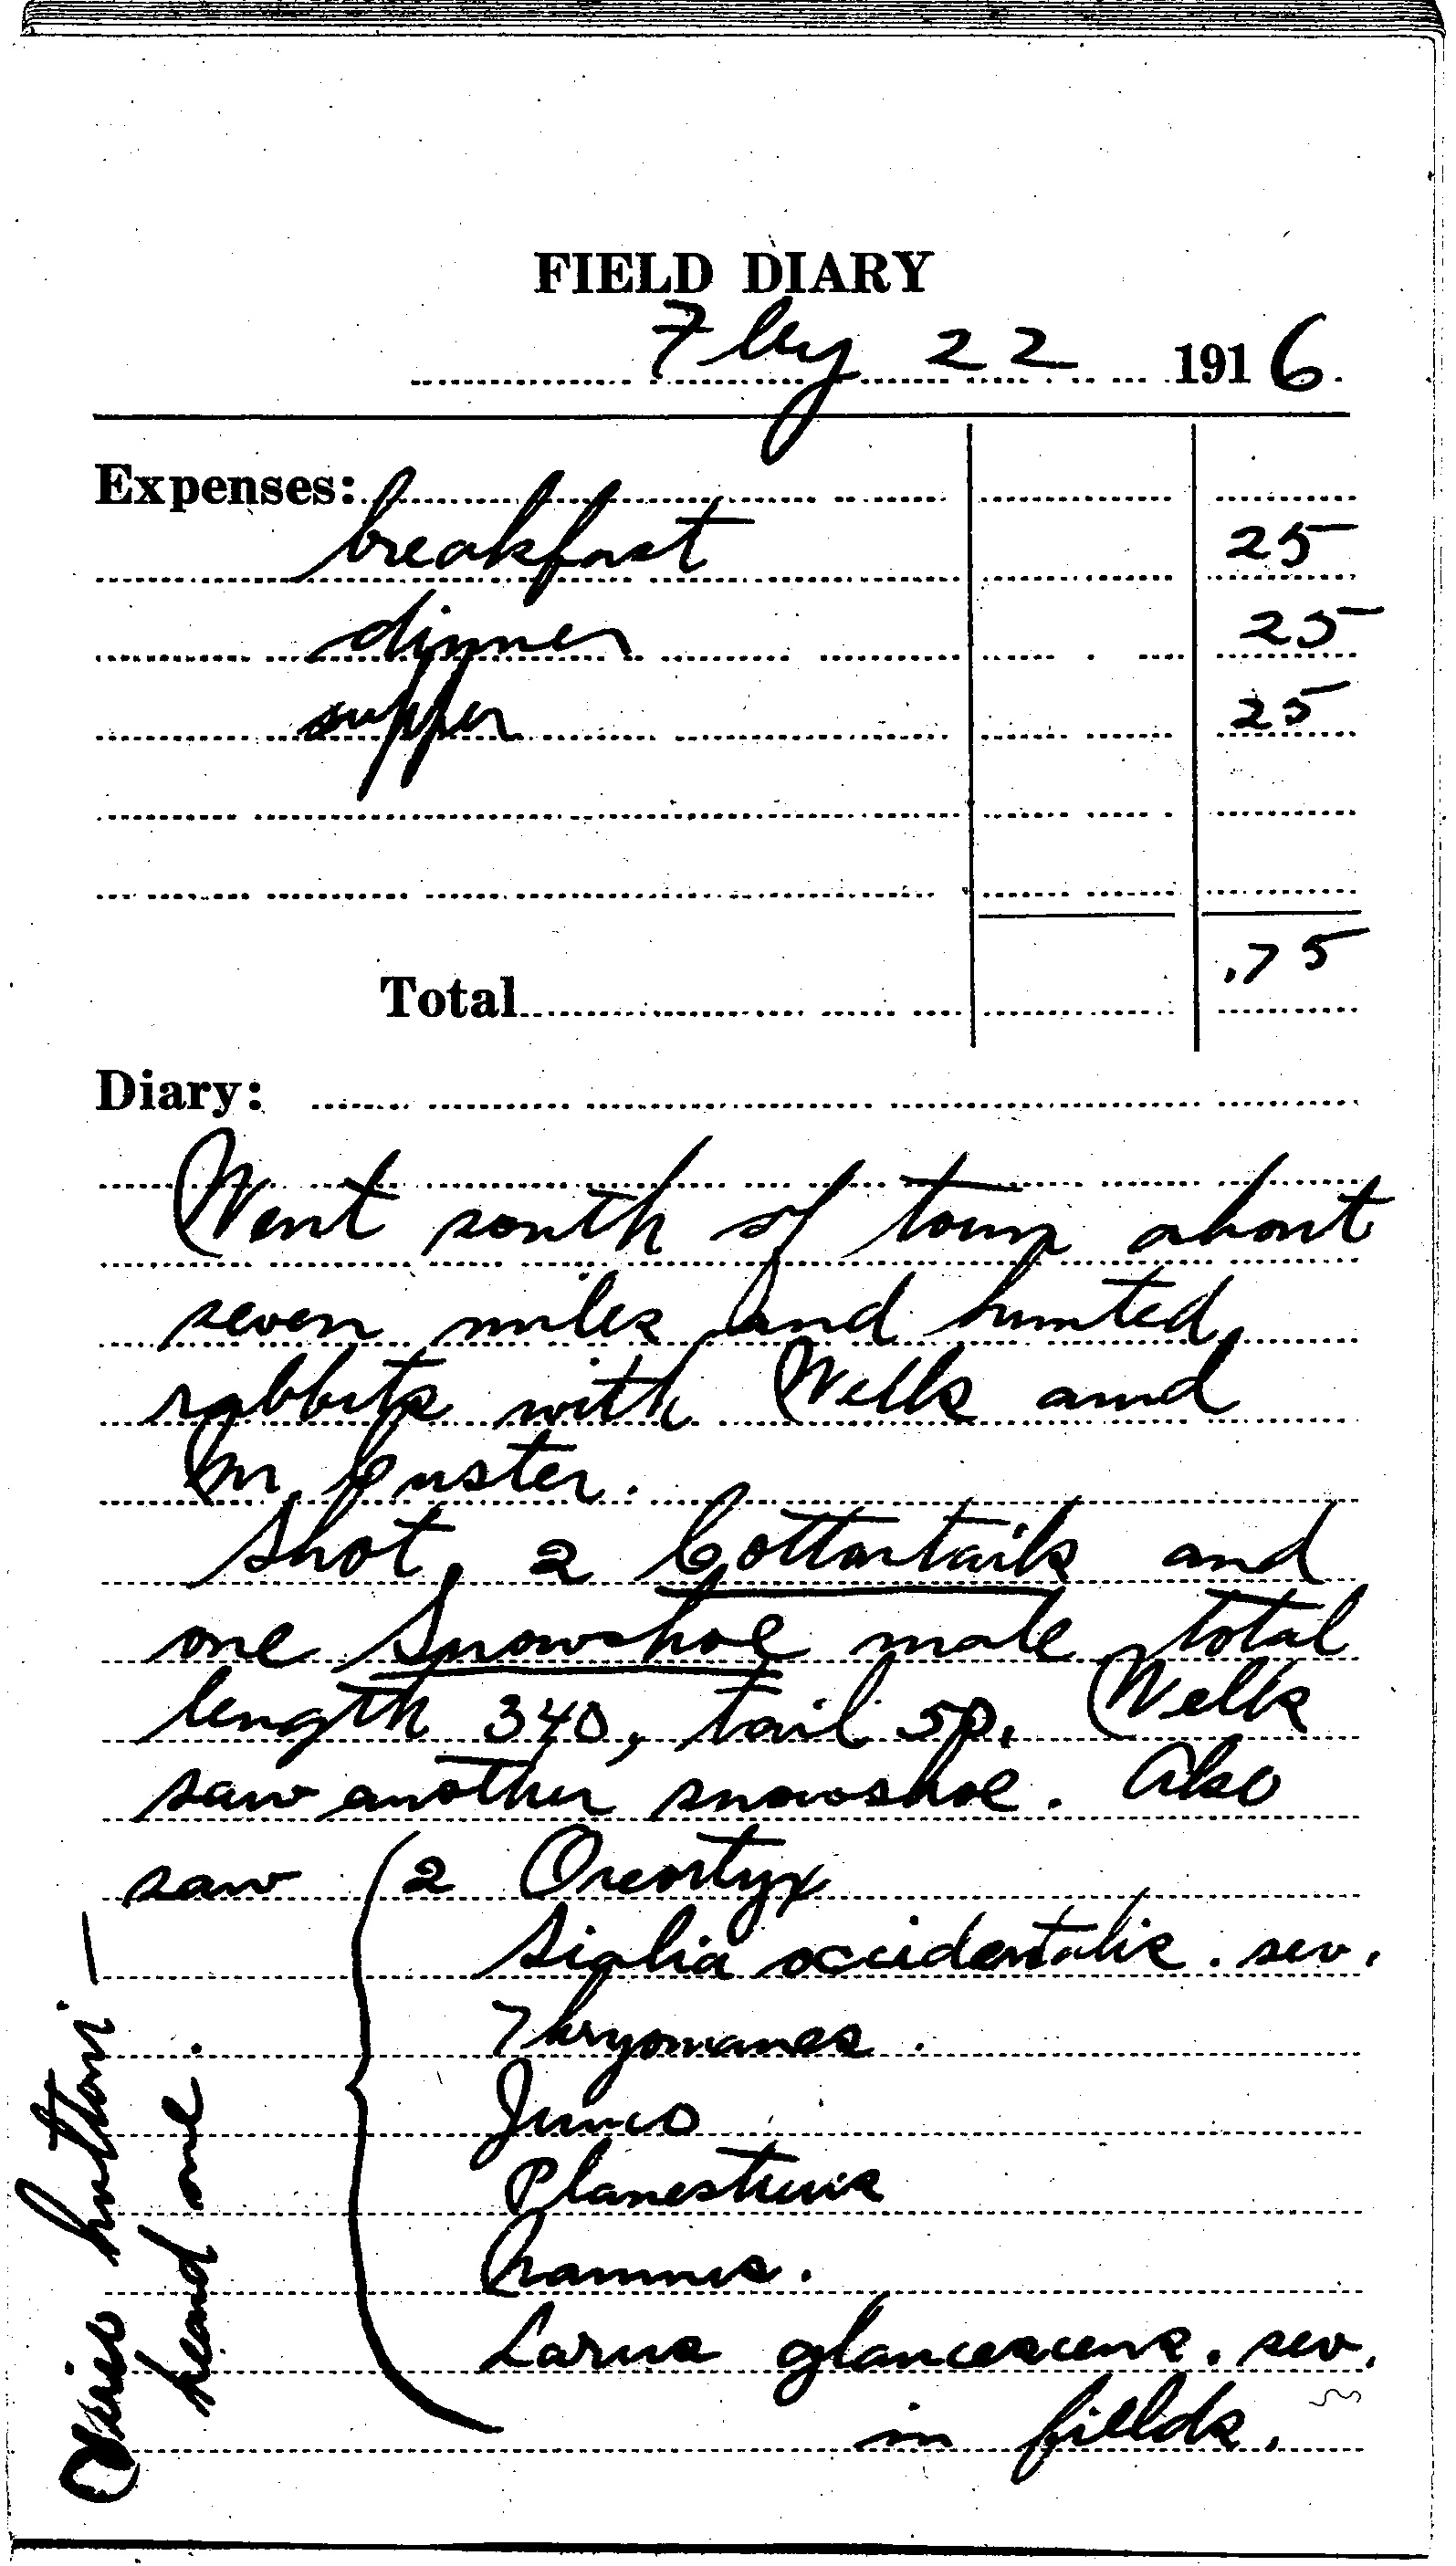 FIELD DIARY
Feby 22 1916.
Expenses:
breakfast 25
dinner 25
supper 25
Total .75
Diary:
Went south of town about
seven miles and hunted
rabbits with Wells and
Mr. Custer.
Shot 2 Cottontails and
one Snowshoe male total
length 340, tail 50. Wells
saw another snowshoe. Also
saw 2 Oreortyx
Sialia occidentalis. sev.
Thryomanes.
Junco
Planesticus
Chamaea.
Larus glaucescens. sev.
in fields.
Vireo huttoni —
heard one.